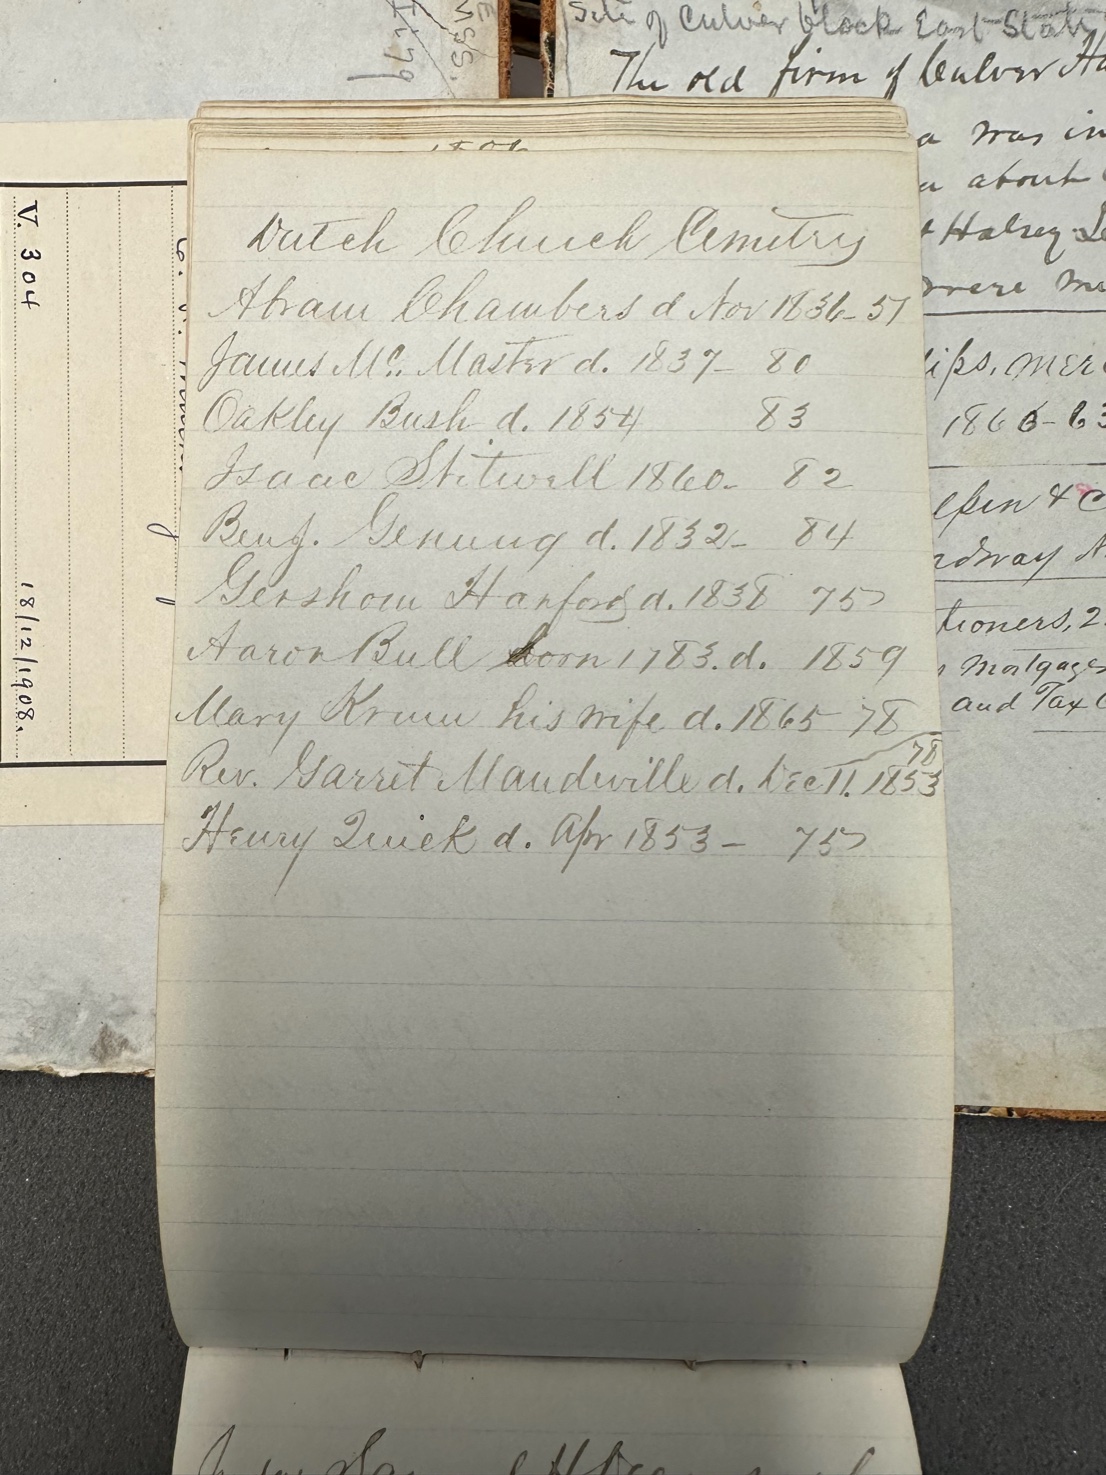 MSS.
V. 304
18/12/1908.
Site of Culver block East State
The old firm of Culver
was in
about
Halsey
were
1866-63
& C
tioners, 2
Mortgages
and Tax
Dutch Church Cemetry
Abram Chambers d Nov 1836-51
James Mc. Master d. 1837- 80
Oakley Bush d. 1854 83
Isaac Stitwell 1860- 82
Benj. Genung d. 1832- 84
Gershom Hanford d. 1838 75
Aaron Bull born 1783. d. 1859
Mary Krum his wife d. 1865 78
78
Rev. Garret Mandeville d. Dec 11. 1853
Henry Quick d. Apr 1853 - 75